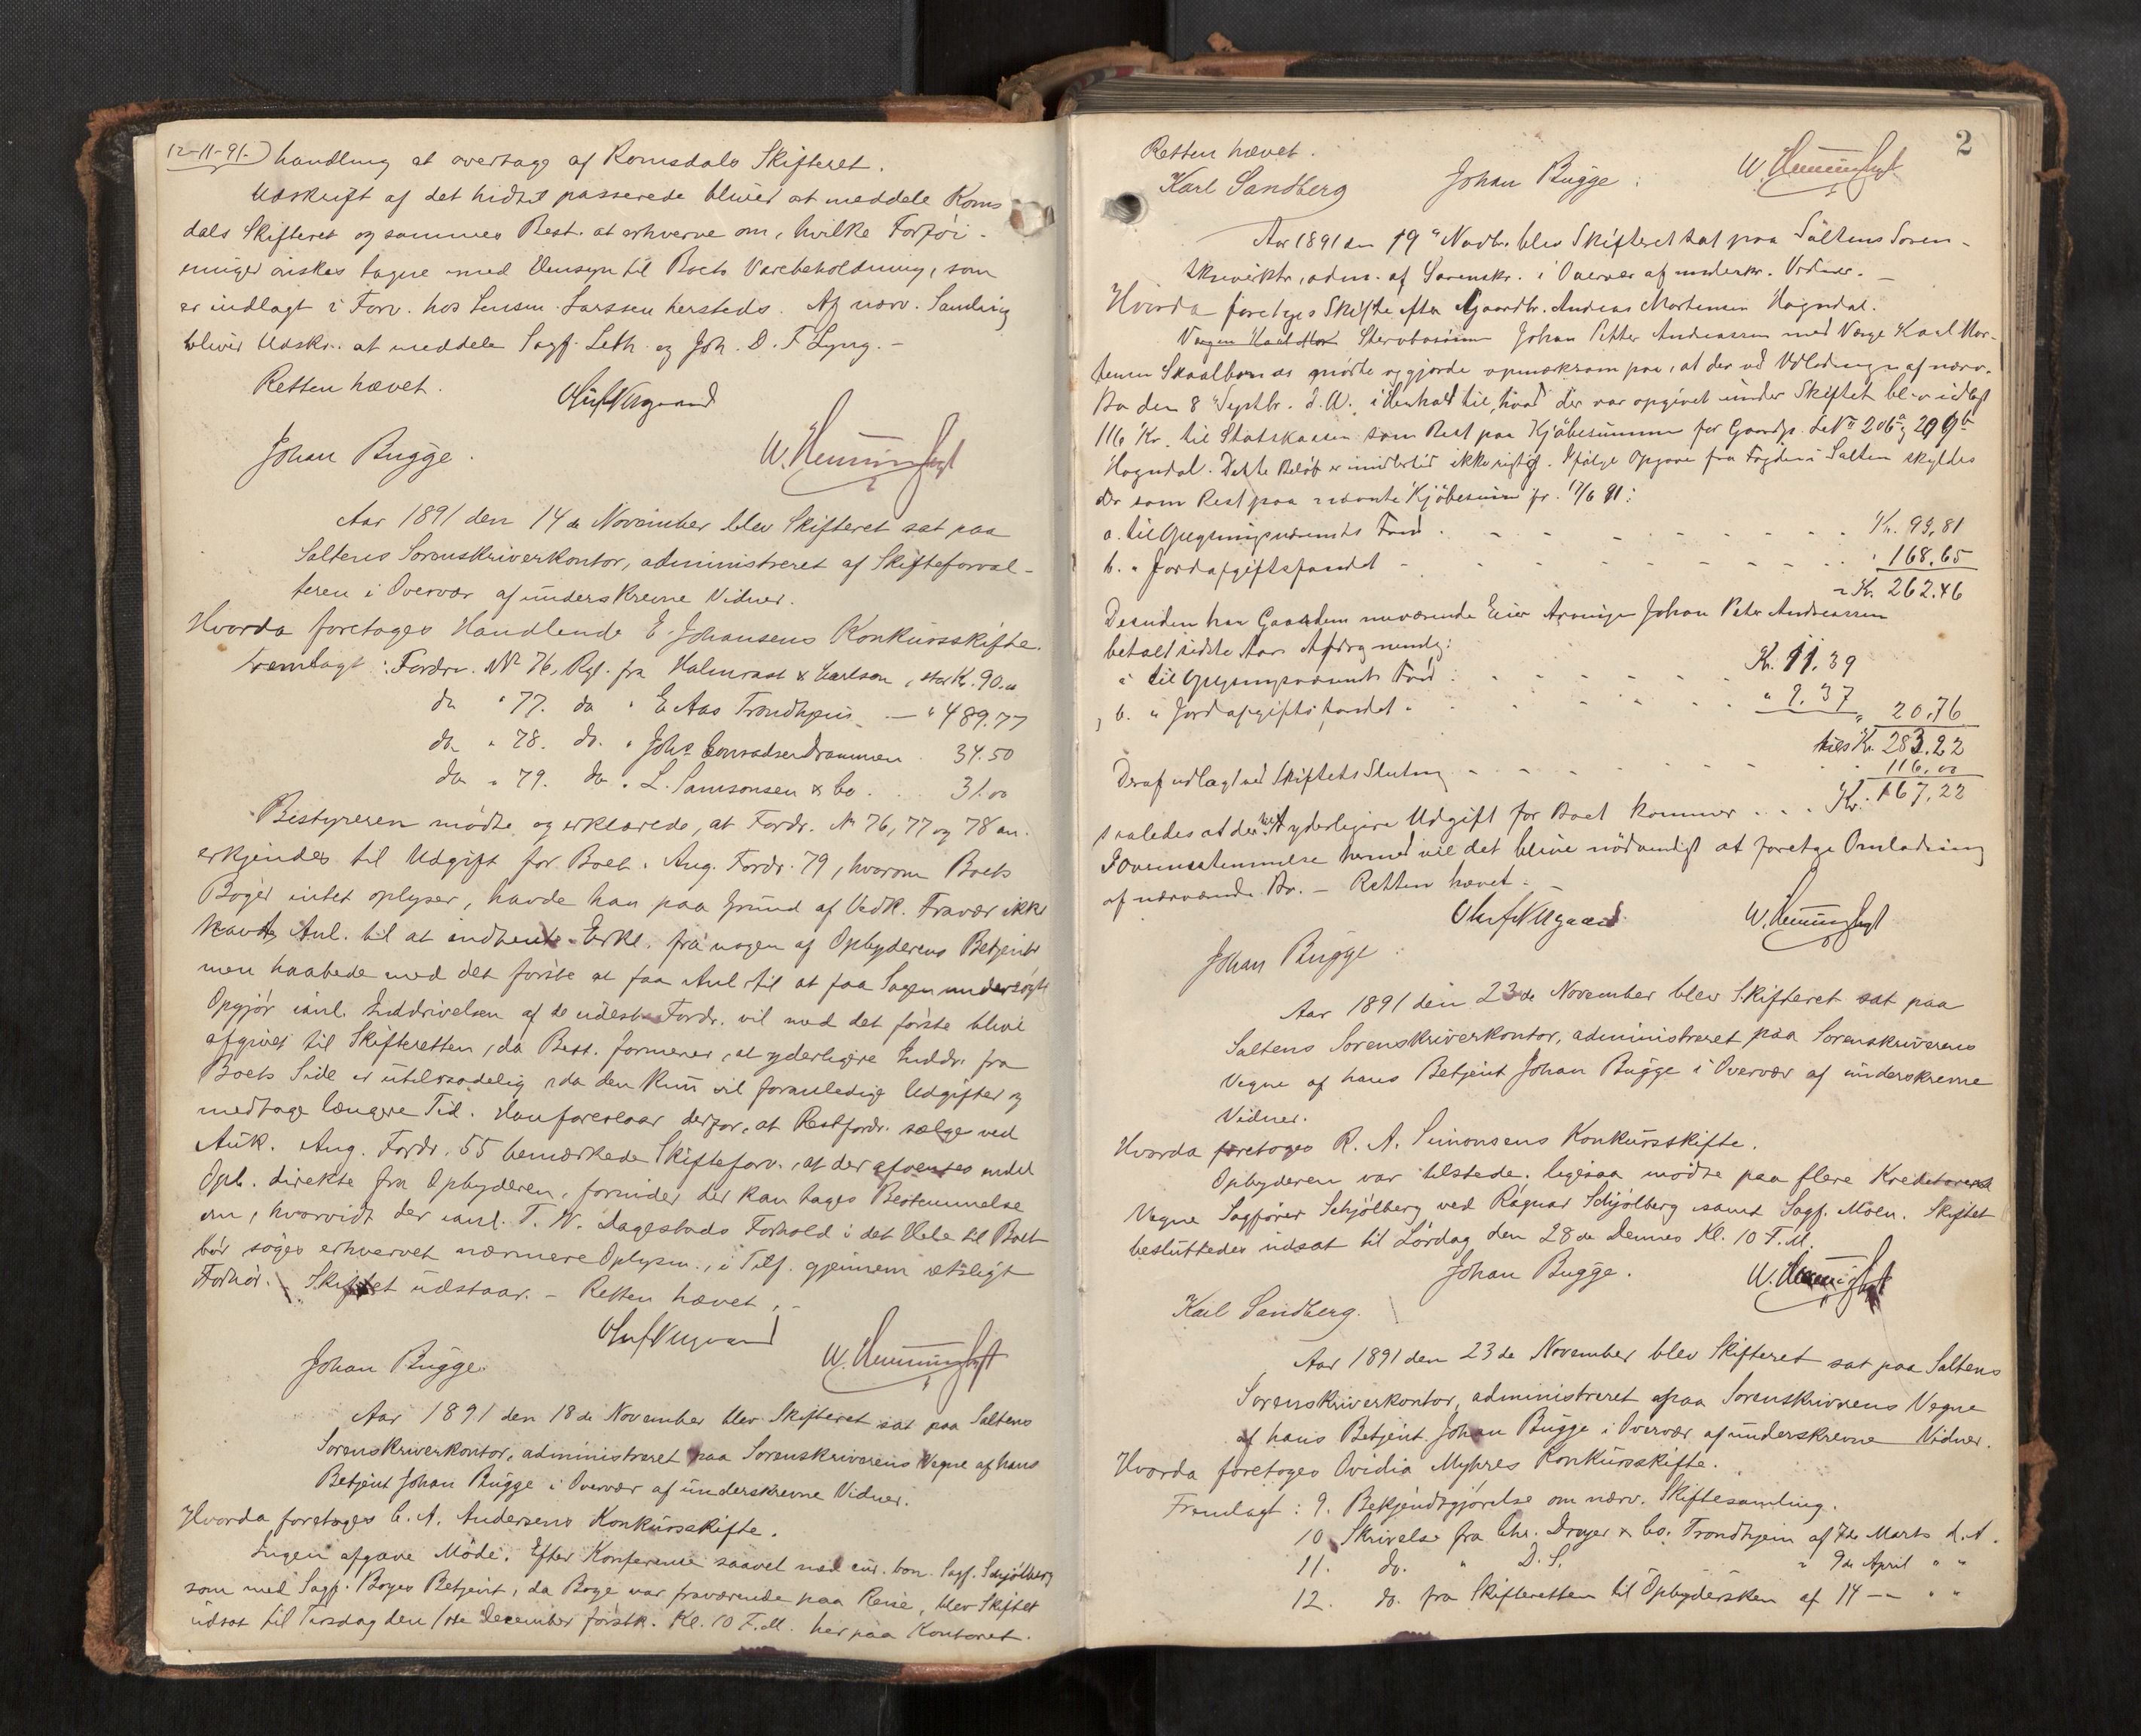 12-11-91.) handling at overtage af Romsdals Skifteret.
Udskrift af det hidtil passerede bliver at meddele Roms
dals Skifteret og sammes Best. at erhverve om, hvilke Forföi-
eninger önskes tagne med Hensyn til Boets Varebeholdning, som
er indlagt i Forv. hos Lensm. Larssen hersteds. Af nærv. Samling
bliver Udskr. at meddele Sagf. Leth og Joh. D. F Lyng. -
Retten hævet.
Johan Bugge.
Aar 1891 den 14de November blev Skifteret sat paa
Saltens Sorenskriverkontor, administreret af Skifteforval-
teren i Overvær af underskrevne Vidner.
Hvorda foretoges Handlende E. Johansens Konkursskifte.
Fremlagt: Fordr. No 76, Rgl. fra Halmrast & Carlson, stor Kr. 90.00
do " 77. do " E Aas Trondhjem — " 489.77
do " 78. do. " Johs Conradsen Drammen . 34.50
do " 79. do " L. Samsonsen & Co. . . 31.00
Bestyreren mödte og erklærede, at Fordr. No 76, 77 og 78 an-
erkjendes til Udgift for Boet. Ang. Fordr. 79, hvorom Boets
Böger intet oplyser, havde han paa Grund af Vedk. Fravær ikke
havt Anl. til at indhente Erkl. fra nogen af Opbyderens Betjente
men haabede med det förste at faa Anl. til at faa Sagen undersögt
Opgjör anl. Inddrivelsen af de udest. Fordr. vil med det förste blive
afgivet til Skifteretten, da Best. formener, at yderligere Inddr. fra
Boets Side er utilraadelig, da den kun vil foranledige Udgifter og
medtage længere Tid. Han foreslaar derfor, at Restfordr. sælges ved
Auk. Ang. Fordr. 55 bemærkede Skifteforv., at der afventes
Opl. direkte fra Opbyderen, forinden der kan tages Bestemmelse
om, hvorvidt der anl. T. N. Dagestads Forhold i det Hele til Boet
bör söges erhvervet nærmere Oplysn., i Tilf. gjennem retsligt
Forhör. - Skiftet udstaar. - Retten hævet. -
Johan Bugge.
Aar 1891 den 18de November blev Skifteret sat paa Saltens
Sorenskriverkontor, administreret paa Sorenskriverens Vegne af hans
Betjent Johan Bugge i Overvær af underskrevne Vidner.
Hvorda foretoges C. A. Andersens Konkursskifte.
Ingen afgave Möde. Efter Konference saavel med cur. bon. Sagf. Schjölberg
som med Sagf. Boyes Betjent, da Boye var fraværende paa Reise, blev Skiftet
udsat til Tirsdag den 1ste December förstk. Kl. 10 F.M. her paa Kontoret.
2
Retten hævet.
Karl Sandberg Johan Bugge.
Aar 1891 den 19de Novbr. blev Skifteret sat paa Saltens Soren-
skriverktr, adm. af Sorenskr. i Overvær af underskr. Vidner. -
Hvorda foretoges Skifte efter Gaardbr. Andreas Mortensen Hogndal.
Vergen Karl Mor Johan Petter Andreassen med Verge Karl Mor-
tensen Skaalbones mödte og gjorde opmærksom paa, at der ved Udlodningen af nærv.
Bo den 8 Septbr. d.A. i Henhold til, hvad der var opgivet under Skiftet blev udlagt
116 Kr. til Statskassen som Rest paa Kjöbesummen for Gaardp. LNo 206a og 209b
Hogndal. Dette Belöb er imidlertid ikke rigtigt. Ifölge Opgave fra Fogden i Salten skyldes
der som Rest paa nævnte Kjöbesum pr. 17/6 91:
a. til Oplysningsvæsenets Fond . - - - - Kr. 93,81
b. " Jordafgiftsfondet - - - - " 168.65
Kr. 262.46
Desuden har Gaardens nuværende Eier Arvingen Johan Peter Andreassen
betalt sidste Aars Afdrag nemlig:
a til Oplysningsvæsenets Fond . - - - Kr. 11.39
b. " Jordafgiftsfondet . - - - " 9.37 " 20.76
tils Kr. 283.22
Deraf udlagt ved Skiftets Slutning - - - - 116.00
saaledes at der som yderligere Udgift for Boet kommer . . . Kr. 167,22
I Overensstemmelse hermed vil det blive nödvendigt at foretage Omlodning
af nærværende Bo. - Retten hævet. -
Johan Bugge
Aar 1891 den 23de November blev Skifteret sat paa
Saltens Sorenskriverkontor, administreret paa Sorenskriverens
Vegne af hans Betjent Johan Bugge i Overvær af underskrevne
Vidner.
Hvorda foretoges R. A. Simonsens Konkursskifte.
Opbyderen var tilstede, ligesaa mödte paa flere Kreditorers
Vegne Sagförer Schjölberg ved Ragnar Schjölberg samt Sagf. Moen. Skiftet
besluttedes udsat til Lördag den 28de Dennes Kl. 10 F.M.
Johan Bugge.
Karl Sandberg.
Aar 1891 den 23de November blev Skifteret sat paa Saltens
Sorenskriverkontor, administreret paa Sorenskriverens Vegne
af hans Betjent Johan Bugge i Overvær af underskrevne Vidner.
Hvorda foretoges Ovidia Myhres Konkursskifte.
Fremlagt: 9. Bekjendtgjörelse om nærv. Skiftesamling.
10 Skrivelse fra Chr. Dreyer & Co. Trondhjem af 7de Marts d.A.
11. do. " D. S. " 9de April " "
12. do. fra Skifteretten til Opbydersken af 14 — " "